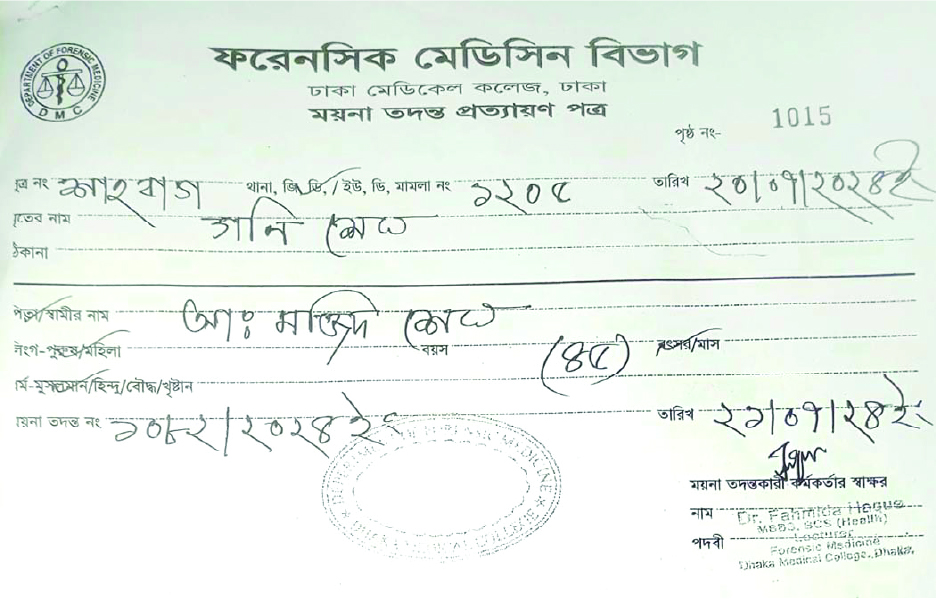 DEPARTMENT OF FORENSIC MEDICINE
DMC
ফরেনসিক মেডিসিন বিভাগ
ঢাকা মেডিকেল কলেজ, ঢাকা
ময়না তদন্ত প্রত্যায়ণ পত্র
পৃষ্ঠ নং- 1015
ত্র নং শাহবাগ থানা, জি, ডি,/ইউ, ডি, মামলা নং ১২০৫ তারিখ ২০/০৭/২০২৪ইং
তের নাম গনি শেখ
ঠিকানা
পিতা/স্বামীর নাম আঃ মজিদ শেখ
লিংগ-পুরুষ/মহিলা বয়স (৪৫) বৎসর/মাস
র্ম-মুসলমান/হিন্দু/বৌদ্ধ/খৃষ্টান
য়না তদন্ত নং ১০৮২/২০২৪ইং তারিখ ২১/০৭/২৪ইং
ময়না তদন্তকারী কর্মকর্তার স্বাক্ষর
নাম Dr. Fahmida Haque
MBBS, BCS (Health)
পদবী Lecturer
Forensic Medicine
Dhaka Medical College, Dhaka.